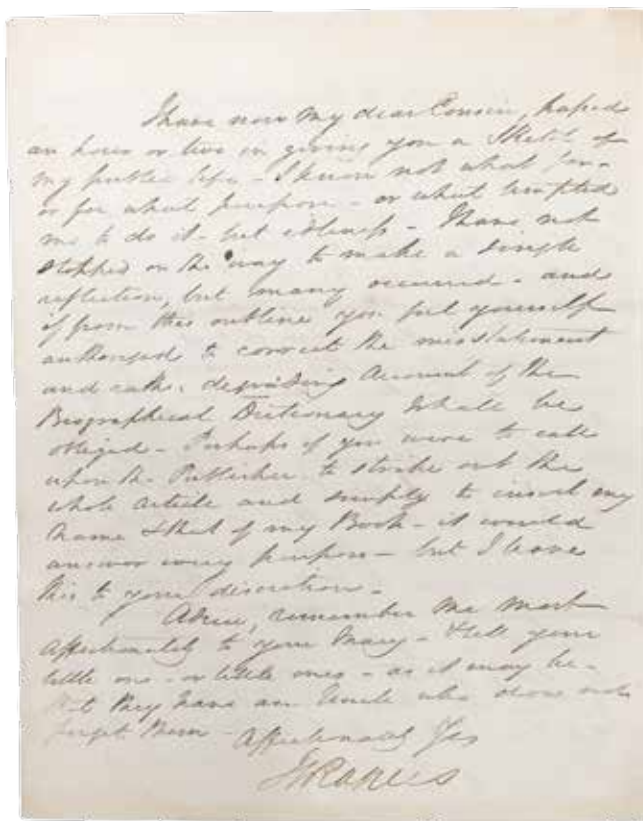 I have now my dear Cousin, passed
an hour or two in giving you a Sketch of
my public life - I know not what
or for what purpose - or what tempted
me to do it - but idleness - I have not
stopped on the way to make a single
reflection, but many occurred - and
if from this outline you feel yourself
authorized to correct the misstatement
and rather degrading Account of the
Biographical Dictionary I shall be
obliged - Perhaps if you were to call
upon the Publisher to strike out the
whole article and simply to insert my
name & that of my Book - it would
answer every purpose - but I leave
this to your discretion -
Adieu, remember me most
affectionately to your Mary - & tell your
little one - or little ones - as it may be -
that they have an Uncle who does not
forget them - Affectionately Yrs